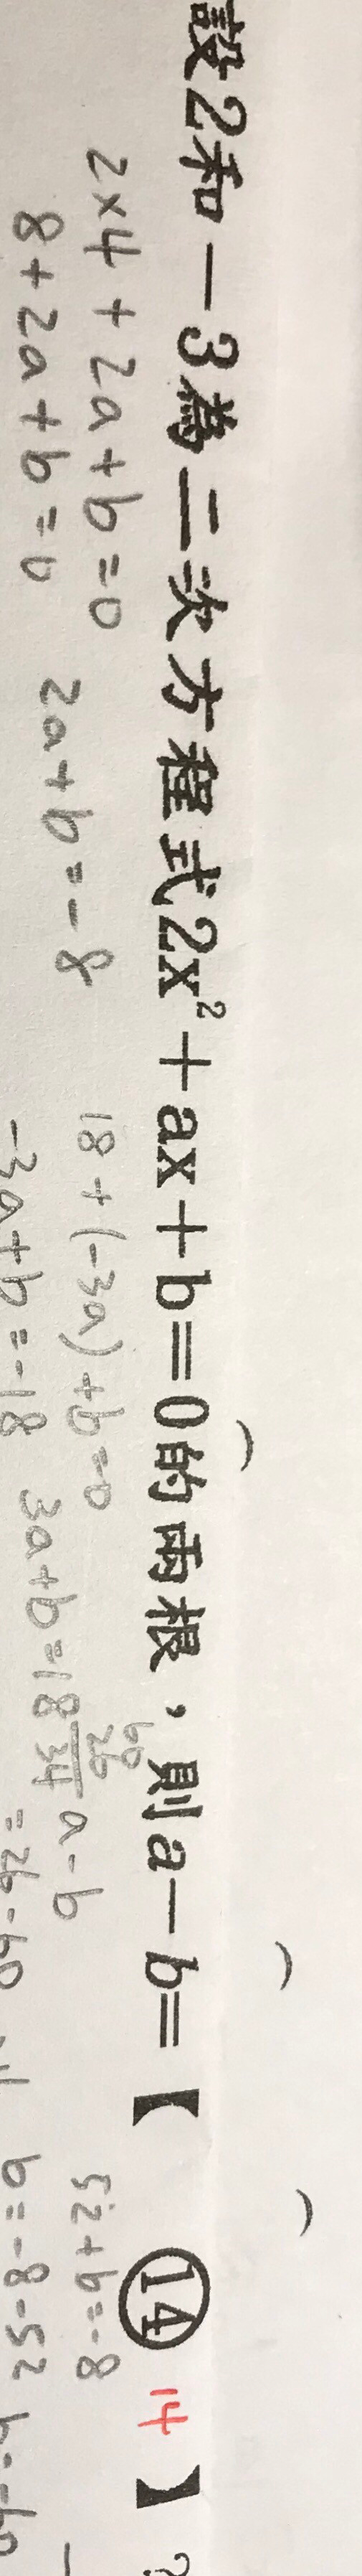 設2和-3為二次方程式2x²+ax+b=0的兩根，則a-b=【 ⑭ 14 】?
2×4+2a+b=0
8+2a+b=0
2a+b=-8
18+(-3a)+b=0
-3a+b=-18
3a+b=18
60
26
34
a-b
=26-60
52+b=-8
b=-8-52
b=-60